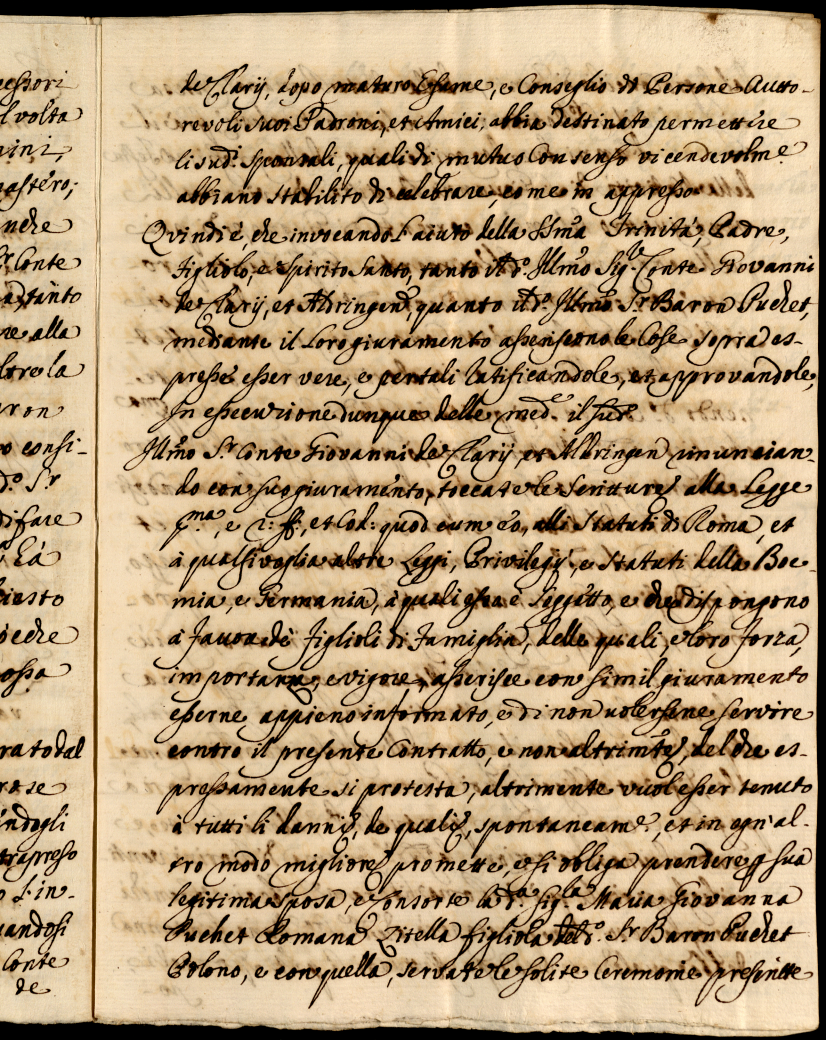 essori
l volta
nini,
nastero;
nche
Sr. Conte
tanto
re alla
ltre la
aron
o consi-
d.º S.r
di fare
Ea
iesto
oeche
ossa
rato dal
rose
indogli
trapreso
o l'in-
uandosi
Conte
de
de Clarij, dopo maturo Esame, e Conseglio di Persone Autto-
revoli suoi Padroni, et Amici, abbia destinato permettere
li sud.i sponsali, quali di mutuo Consenso vicendevolm.e
abbiano stabilito di celebrare, come in appresso
Quindi è, che invocando l'aiuto della SSma Trinità, Padre,
Figliolo, e Spirito Santo, tanto il d.º Illmo Sig.r Conte Giovanni
de Clarij, et Aldringen, quanto il d.º Illmo S.r Baron Puchet,
mediante il Loro giuramento asseriscono le Cose sopra es-
presse esser vere, e per tali ratificandole, et approvandole,
In essecuzione dunque delle med.e il sud.º
Illmo S.r Conte Giovanni de Clarij, et Aldringen rinuncian-
do con suo giuramento, toccate le scritture alla Legge
p.ma, e 2: ff:, et Cod: quod cum eo, alli Statuti di Roma, et
à qualsivoglia altre Leggi, Privilegij, e Statuti della Boe-
mia, e Germania, à quali è soggetto, e che dispongono
à favor de Figlioli di Famiglia, delle quali, e loro forza,
importanza, e vigore, asserisce con simil giuramento
esserne appieno informato, e di non volersene servire
contro il presente Contratto, e non altrimte, del che es-
pressamente si protesta, altrimente vuol esser tenuto
à tutti li danni, de quali, spontaneam.e, et in ogn' al-
tro modo migliore promette, e si obliga prendere p sua
legitima sposa, e Consorte la d.a Sig.la Maria Giovanna
Puchet Romana Zitella figliola del d.º S.r Baron Puchet
Polono, e con quella, servate le solite Ceremonie prescritte